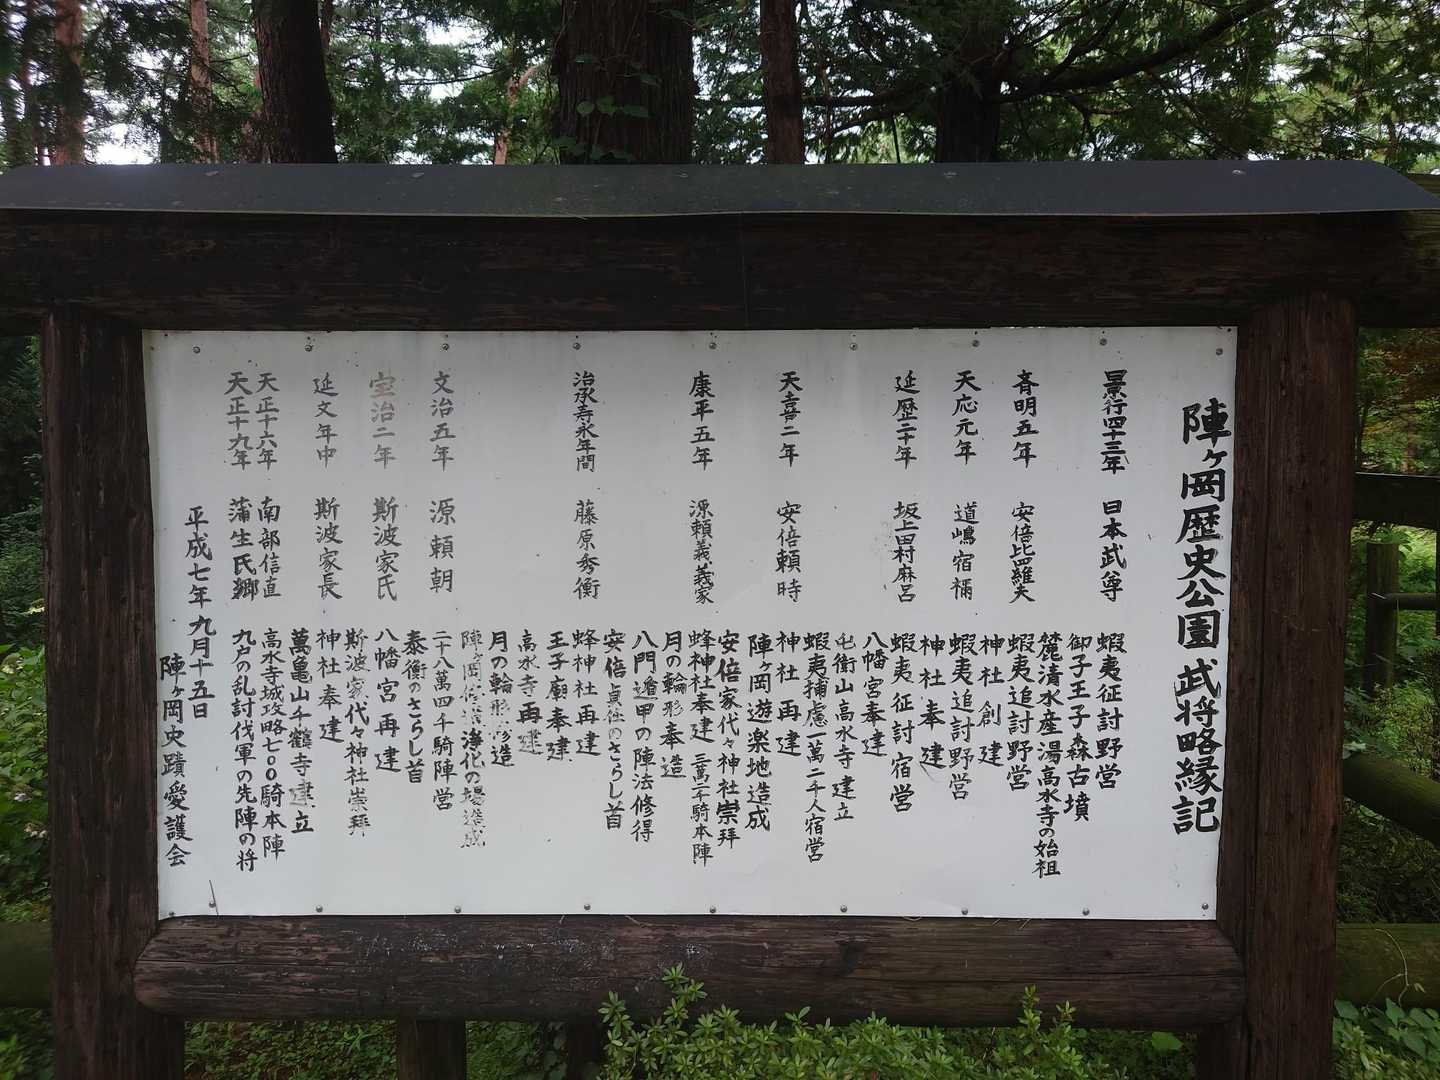 陣ヶ岡歴史公園 武将略縁記
景行四十三年 日本武尊 蝦夷征討野営
御子王子森古墳
麓清水産湯高水寺の始祖
斉明五年 安倍比羅夫 蝦夷追討野営
神社創建
天応元年 道嶋宿禰 蝦夷追討野営
神社奉建
延歴二十年 坂上田村麻呂 蝦夷征討宿営
八幡宮奉建
屯衝山高水寺建立
天喜二年 安倍頼時 蝦夷捕虜一萬二千人宿営
神社再建
陣ヶ岡遊楽地造成
安倍家代々神社崇拝
康平五年 源頼義義家 蜂神社奉建 三萬二千騎本陣
月の輪形奉造
八門遁甲の陣法修得
安倍貞任のさらし首
治承寿永年間 藤原秀衡 蜂神社再建
王子廟奉建
高水寺再建
月の輪形修造
陣ヶ岡 浄化の場造成
文治五年 源頼朝 二十八萬四千騎陣営
泰衡のさらし首
宝治二年 斯波家氏 八幡宮再建
斯波家代々神社崇拝
延文年中 斯波家長 神社奉建
萬亀山千鶴寺建立
天正十六年 南部信直 高水寺城攻略七〇〇騎本陣
天正十九年 蒲生氏郷 九戸の乱討伐軍の先陣の将
平成七年九月十五日
陣ヶ岡史蹟愛護会